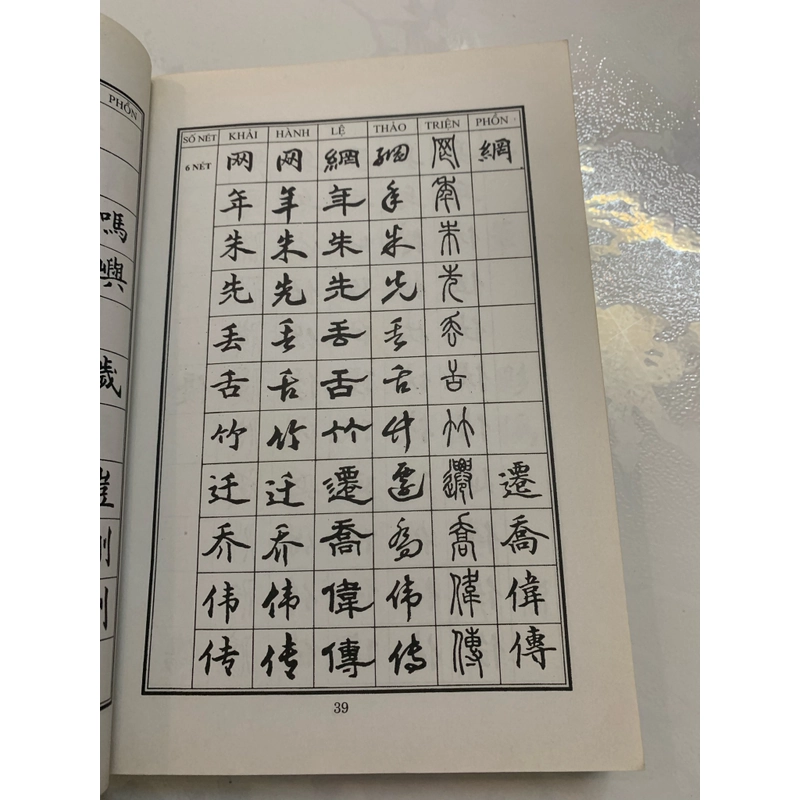 PHỒN
嗎
嶼
歲
SỐ NÉT KHẢI HÀNH LỆ THẢO TRIỆN PHỒN
6 NÉT 网 网 網 網 网 網
年 年 年 年 年
朱 朱 朱 朱 朱
先 先 先 先 先
丢 丢 丢 丢 丢
舌 舌 舌 舌 舌
竹 竹 竹 竹 竹
迁 迁 遷 遷 遷 遷
乔 乔 喬 喬 喬 喬
伟 伟 偉 伟 偉 偉
传 传 傳 傳 傳 傳
39